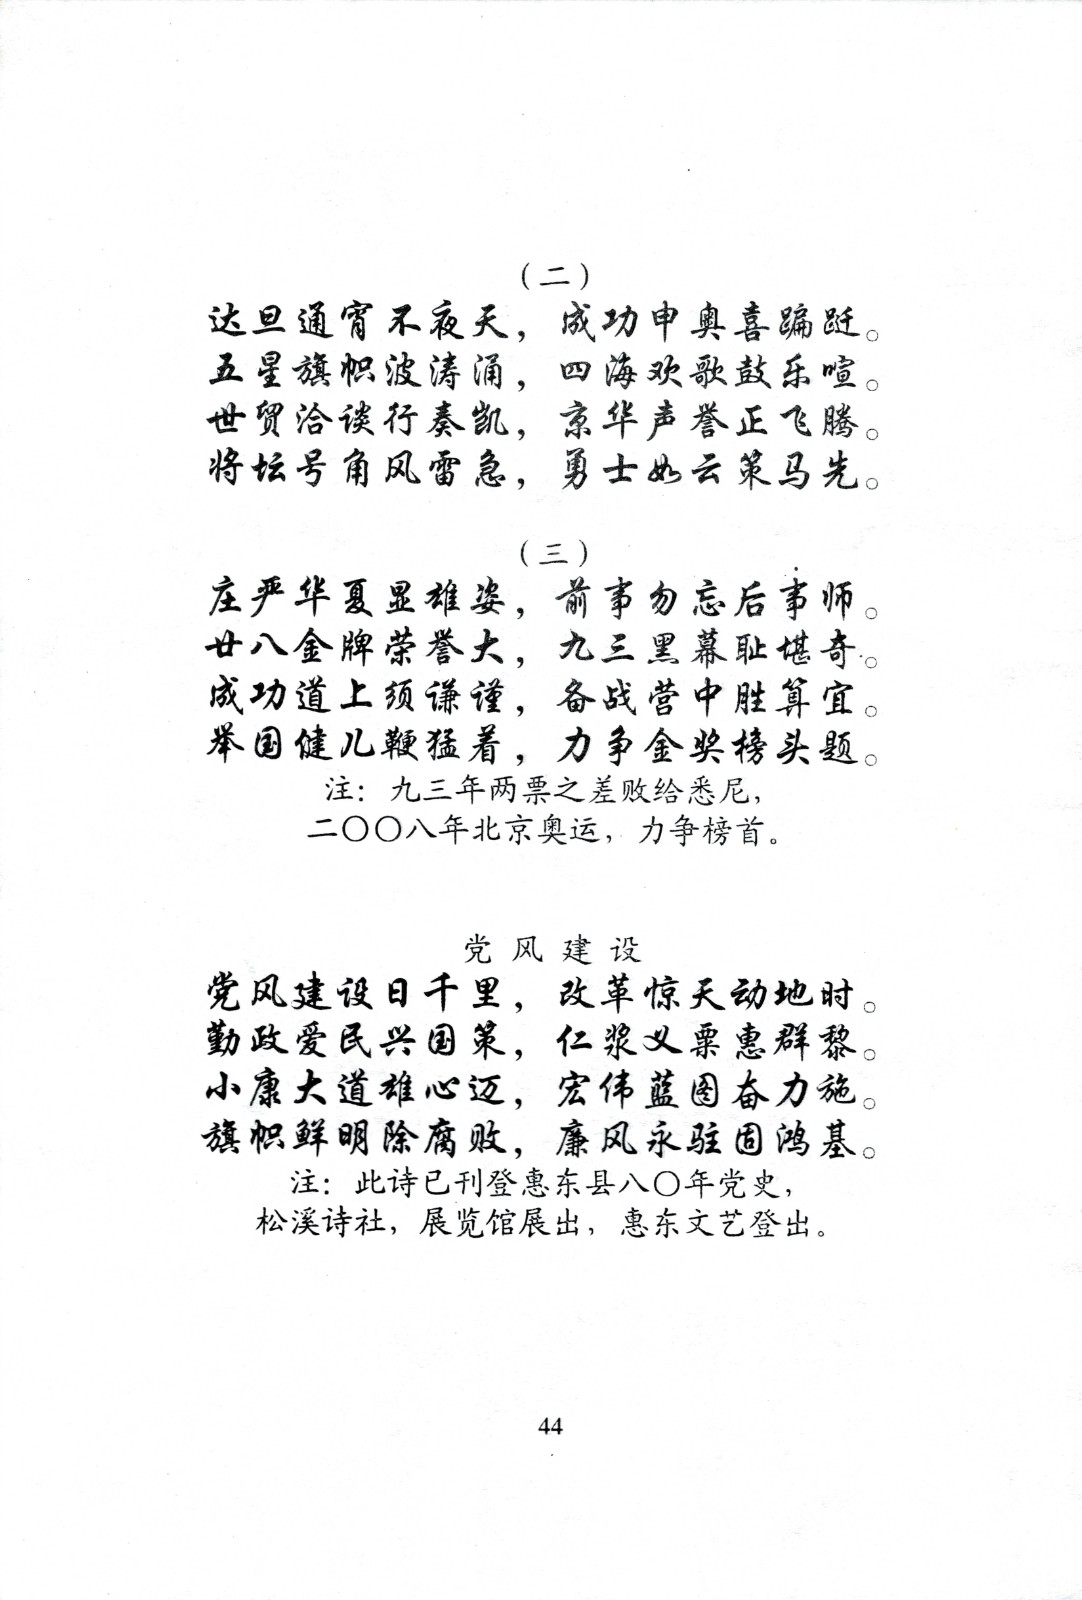 （二）
达旦通宵不夜天，成功申奥喜蹁跹。
五星旗帜波涛涌，四海欢歌鼓乐喧。
世贸洽谈行奏凯，京华声誉正飞腾。
将坛号角风雷急，勇士如云策马先。
（三）
庄严华夏显雄姿，前事勿忘后事师。
廿八金牌荣誉大，九三黑幕耻堪奇。
成功道上须谦谨，备战营中胜算宜。
举国健儿鞭猛着，力争金奖榜头题。
注：九三年两票之差败给悉尼，
二〇〇八年北京奥运，力争榜首。
党风建设
党风建设日千里，改革惊天动地时。
勤政爱民兴国策，仁浆义粟惠群黎。
小康大道雄心迈，宏伟蓝图奋力施。
旗帜鲜明除腐败，廉风永驻固鸿基。
注：此诗已刊登惠东县八〇年党史，
松溪诗社，展览馆展出，惠东文艺登出。
44